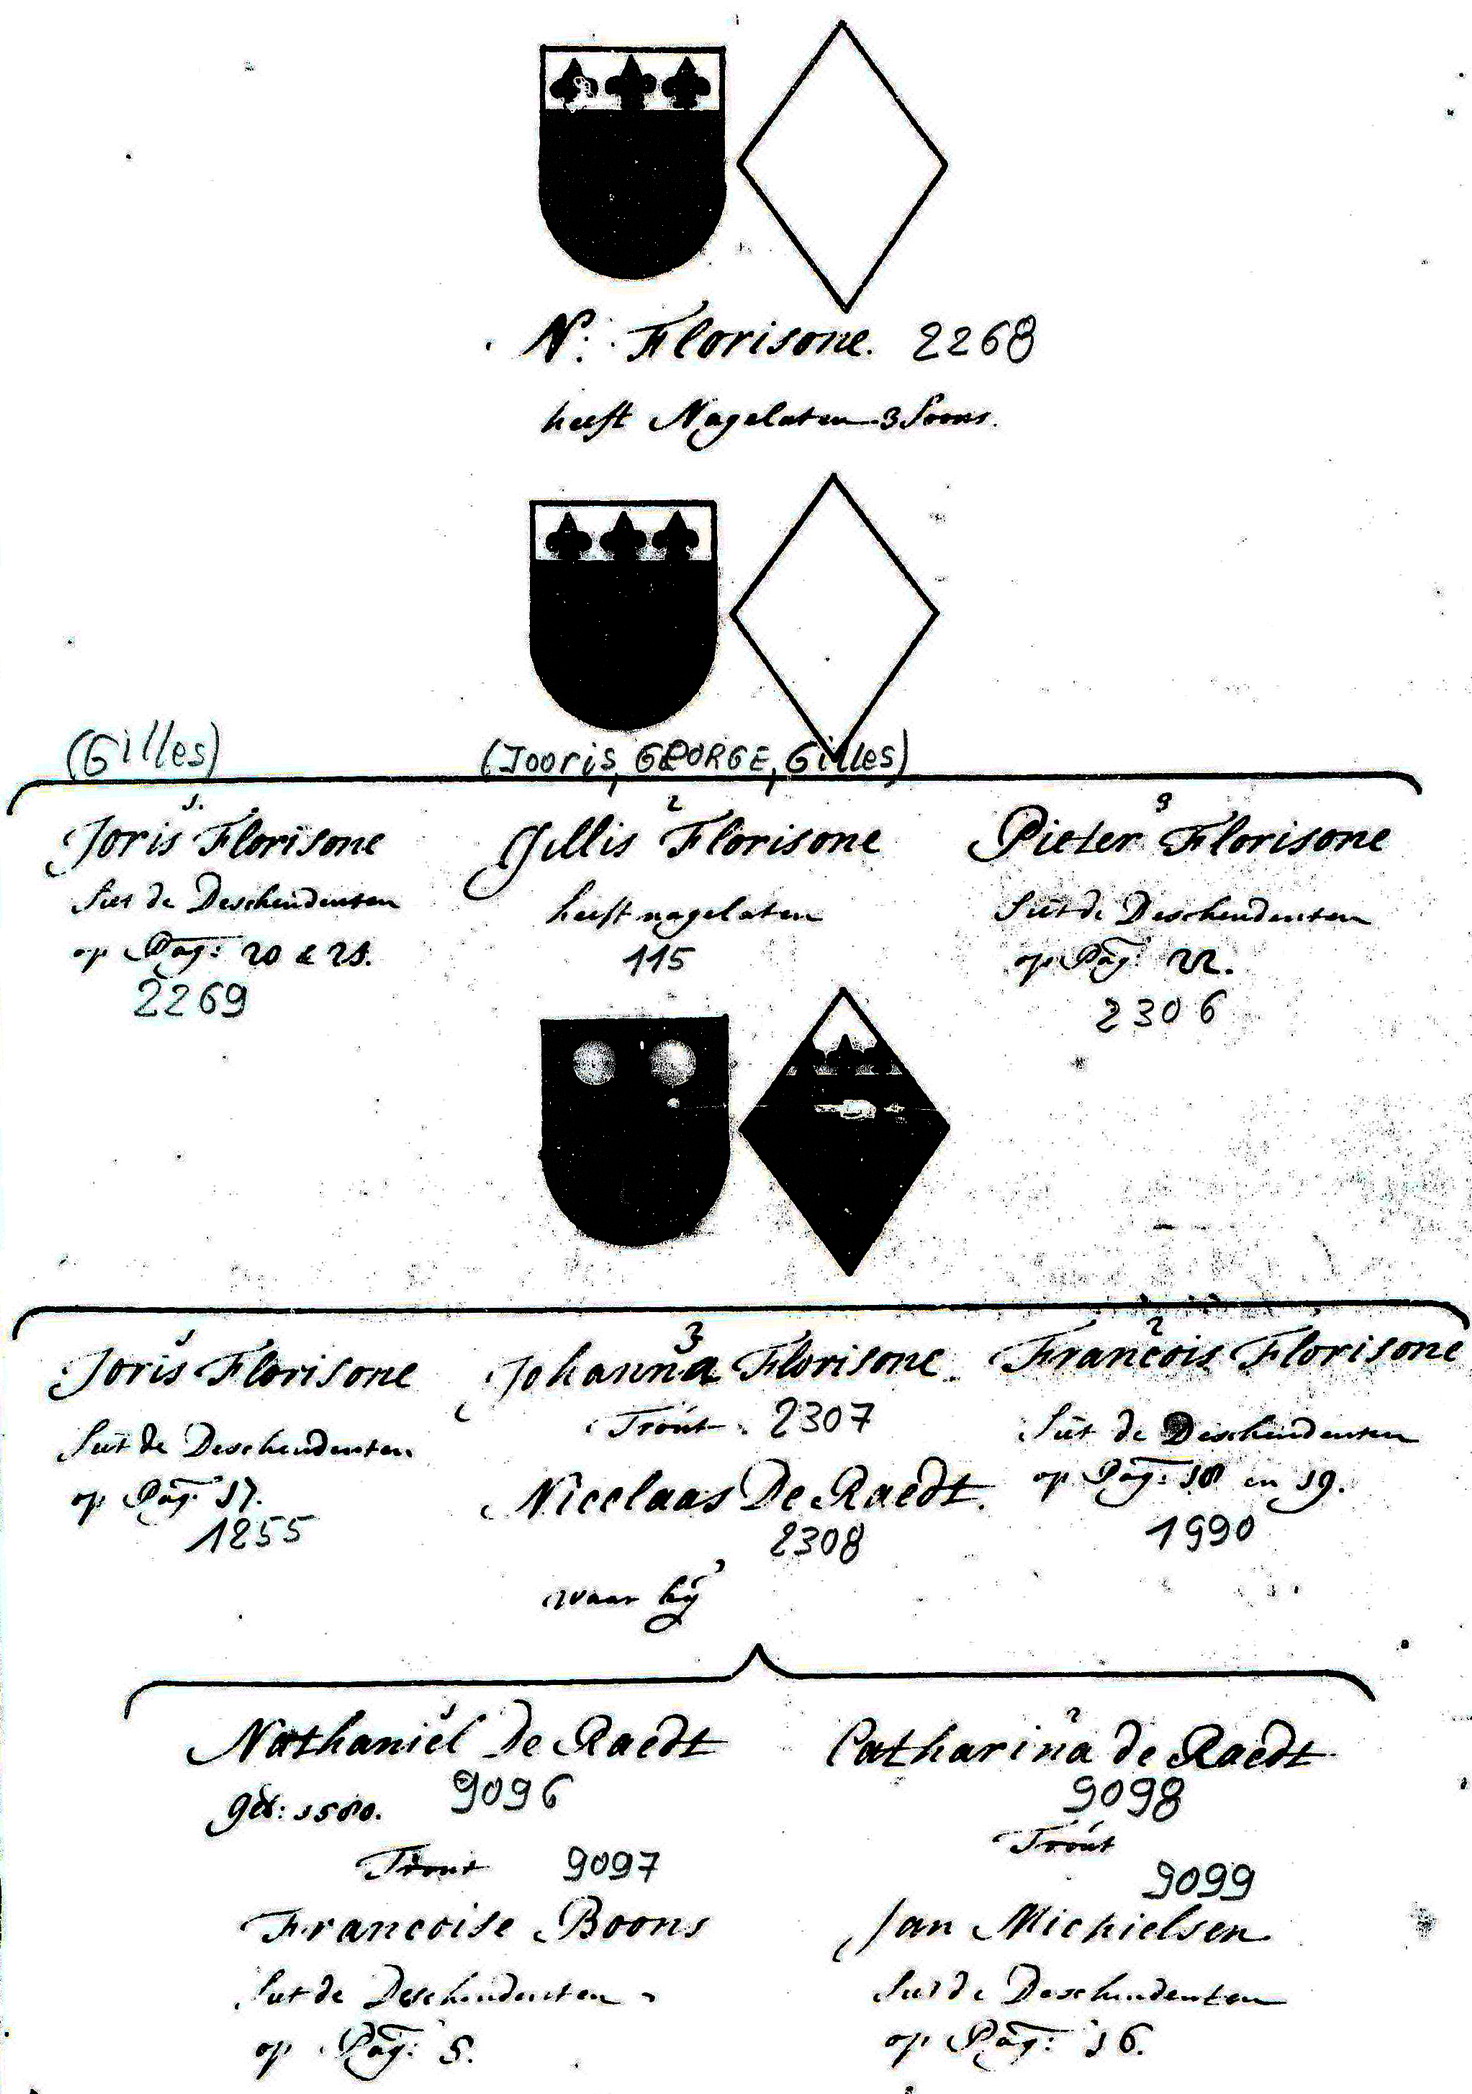 N: Florisone. 2268
heeft Nagelaten 3 Soons.
(Gilles)
(Jooris, GEORGE, Gilles)
1.
Joris Florisone
Siet de Deschendenten
op Pag: 20 & 21.
2269
2
Gillis Florisone
heeft nagelaten
115
3
Pieter Florisone
Siet de Deschendenten
op Pag: 22.
2306
1
Joris Florisone
Siet de Deschendenten
op Pag: 17.
1255
3
Johanna Florisone
Trout 2307
Nicolaas De Raedt.
2308
waar by
2
Francois Florisone
Siet de Deschendenten
op Pag: 18 en 19.
1990
1
Nathaniel De Raedt
geb: 1580. 9096
Trout 9097
Francoise Boons
Siet de Deschendenten
op Pag: 5.
2
Catharina de Raedt
9098
Trout
9099
Jan Michielsen
Siet de Deschendenten
op Pag: 16.